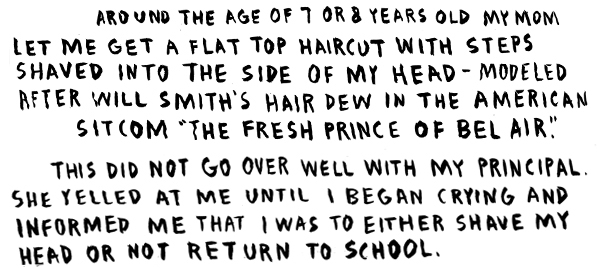 AROUND THE AGE OF 7 OR 8 YEARS OLD MY MOM
LET ME GET A FLAT TOP HAIRCUT WITH STEPS
SHAVED INTO THE SIDE OF MY HEAD - MODELED
AFTER WILL SMITH'S HAIR DEW IN THE AMERICAN
SITCOM "THE FRESH PRINCE OF BEL AIR."
THIS DID NOT GO OVER WELL WITH MY PRINCIPAL.
SHE YELLED AT ME UNTIL I BEGAN CRYING AND
INFORMED ME THAT I WAS TO EITHER SHAVE MY
HEAD OR NOT RETURN TO SCHOOL.